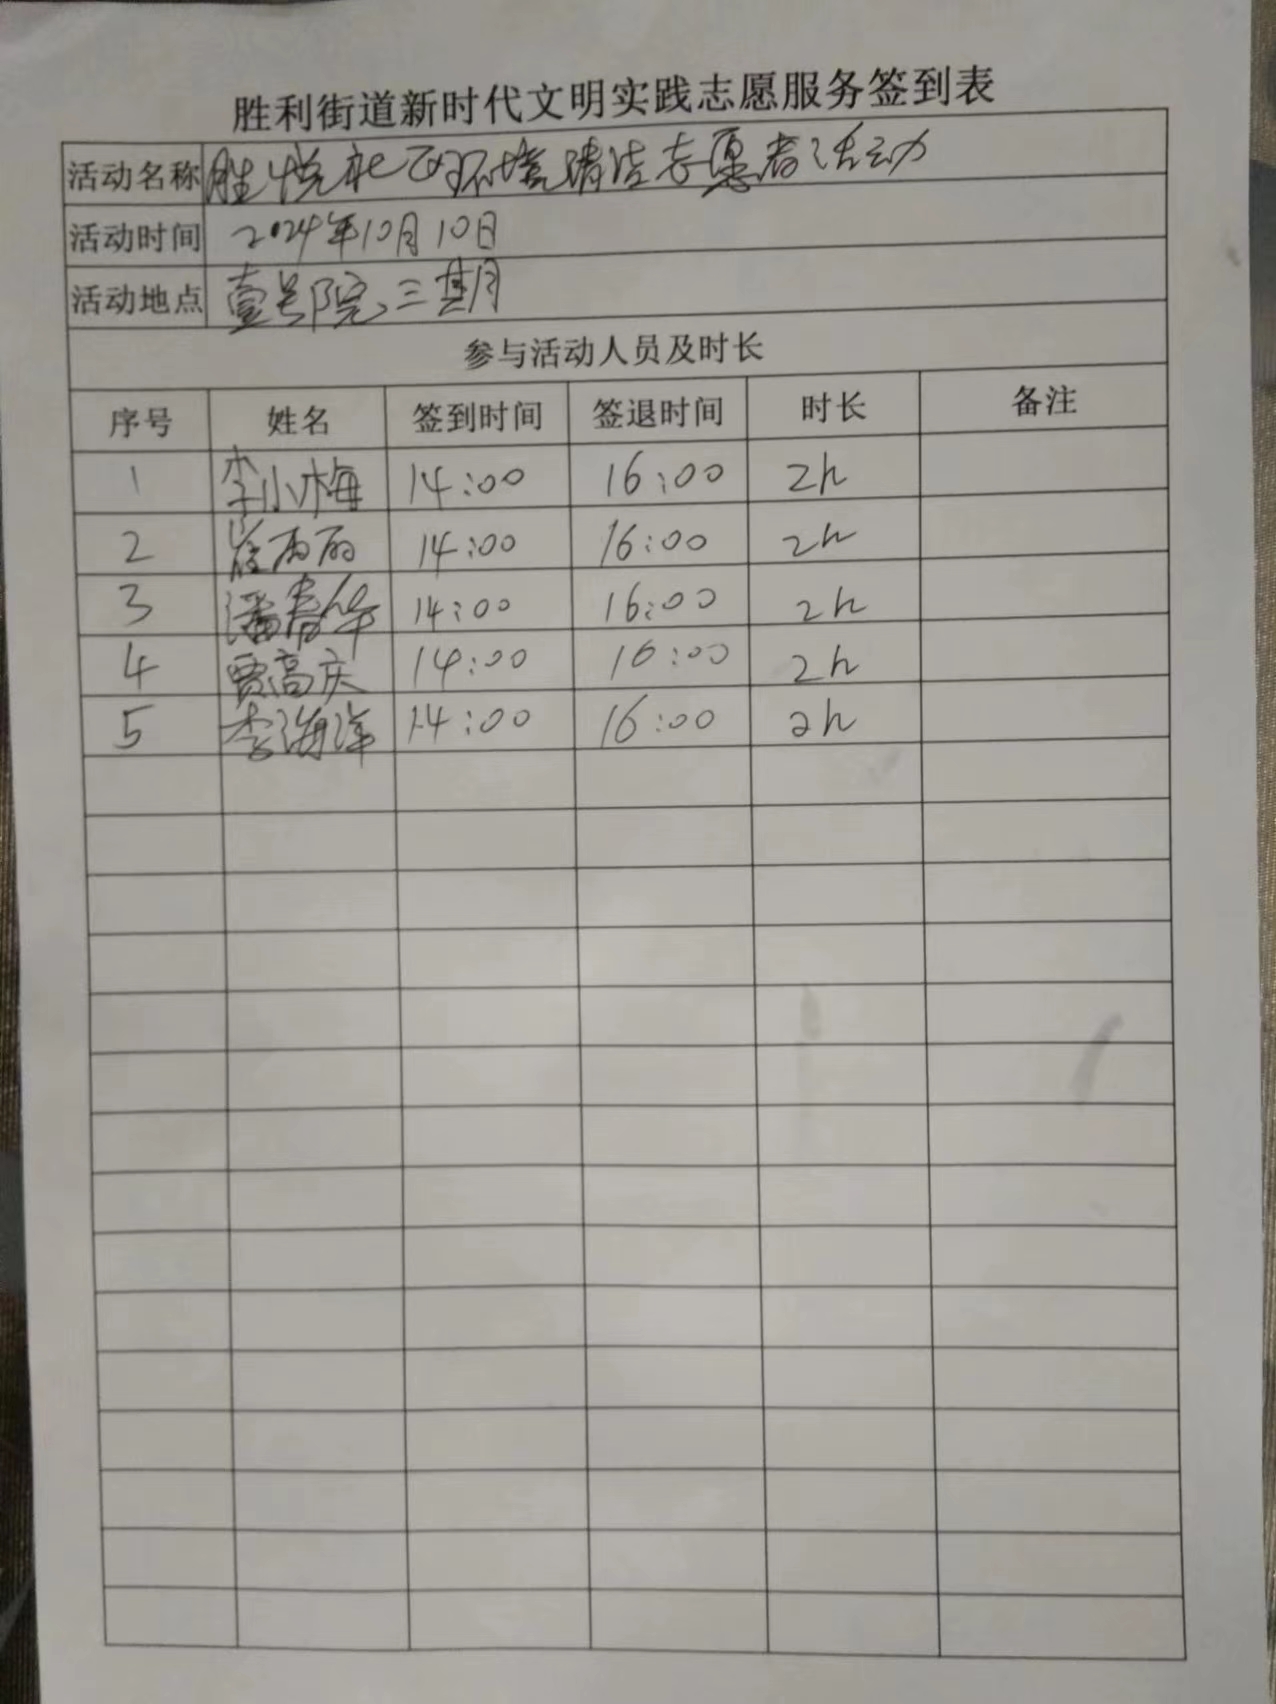 胜利街道新时代文明实践志愿服务签到表
活动名称 胜悦社区环境清洁志愿者活动
活动时间 2024年10月10日
活动地点 壹号院、三期
参与活动人员及时长
序号 姓名 签到时间 签退时间 时长 备注
1 李小梅 14:00 16:00 2h
2 崔雨雨 14:00 16:00 2h
3 潘春华 14:00 16:00 2h
4 贾高庆 14:00 16:00 2h
5 李海洋 14:00 16:00 2h